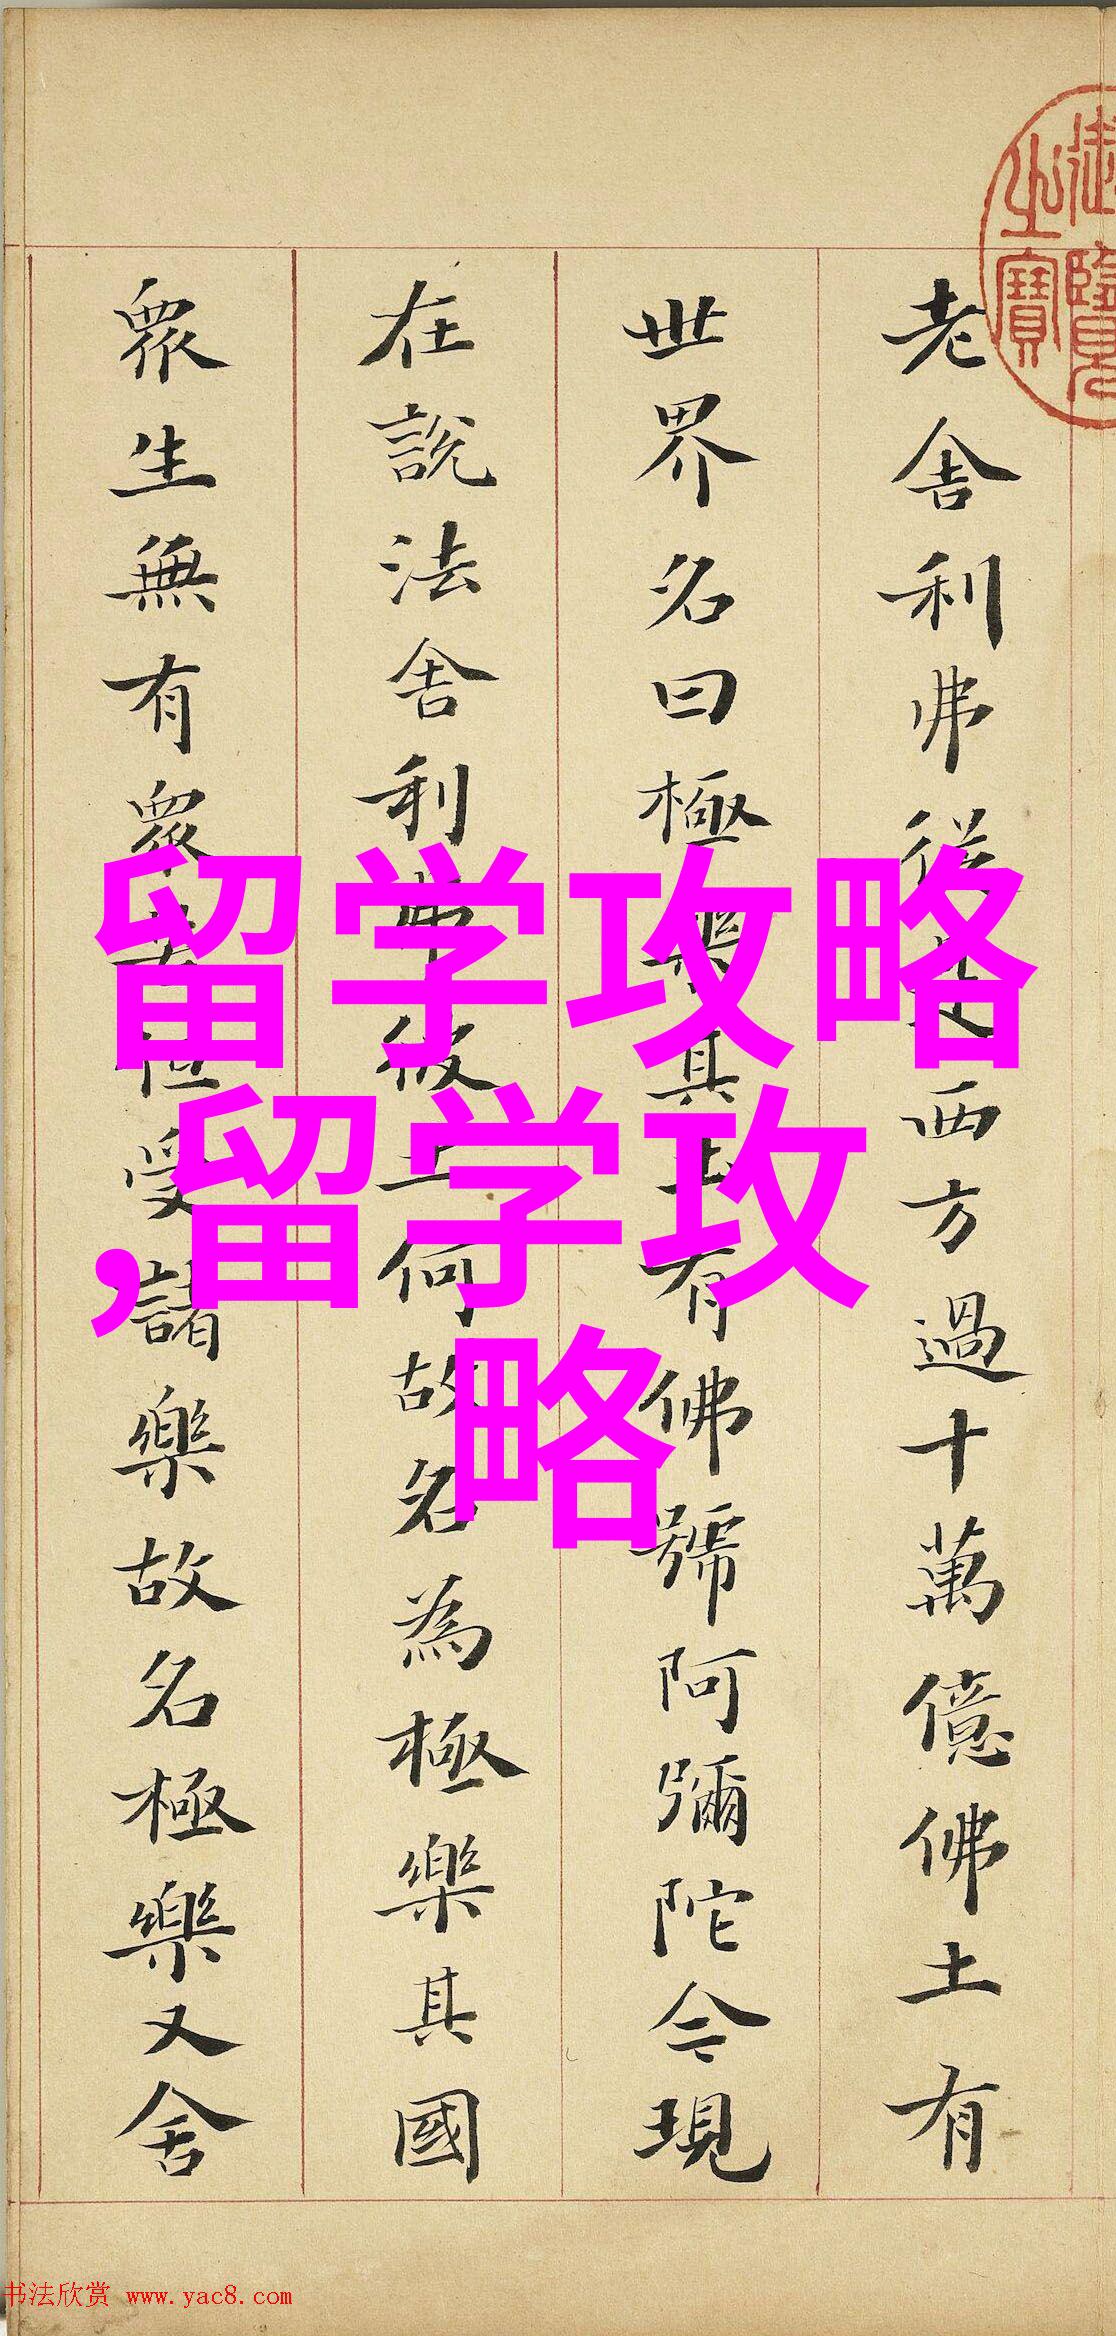 老舍利弗從是西方過十萬億佛土有
世界名曰極樂其土有佛號阿彌陀今現
在說法舍利弗彼土何故名為極樂其國
眾生無有眾苦但受諸樂故名極樂又舍
御覽之寶
留学攻略
,留学攻
略
书法欣赏 www.yac8.com